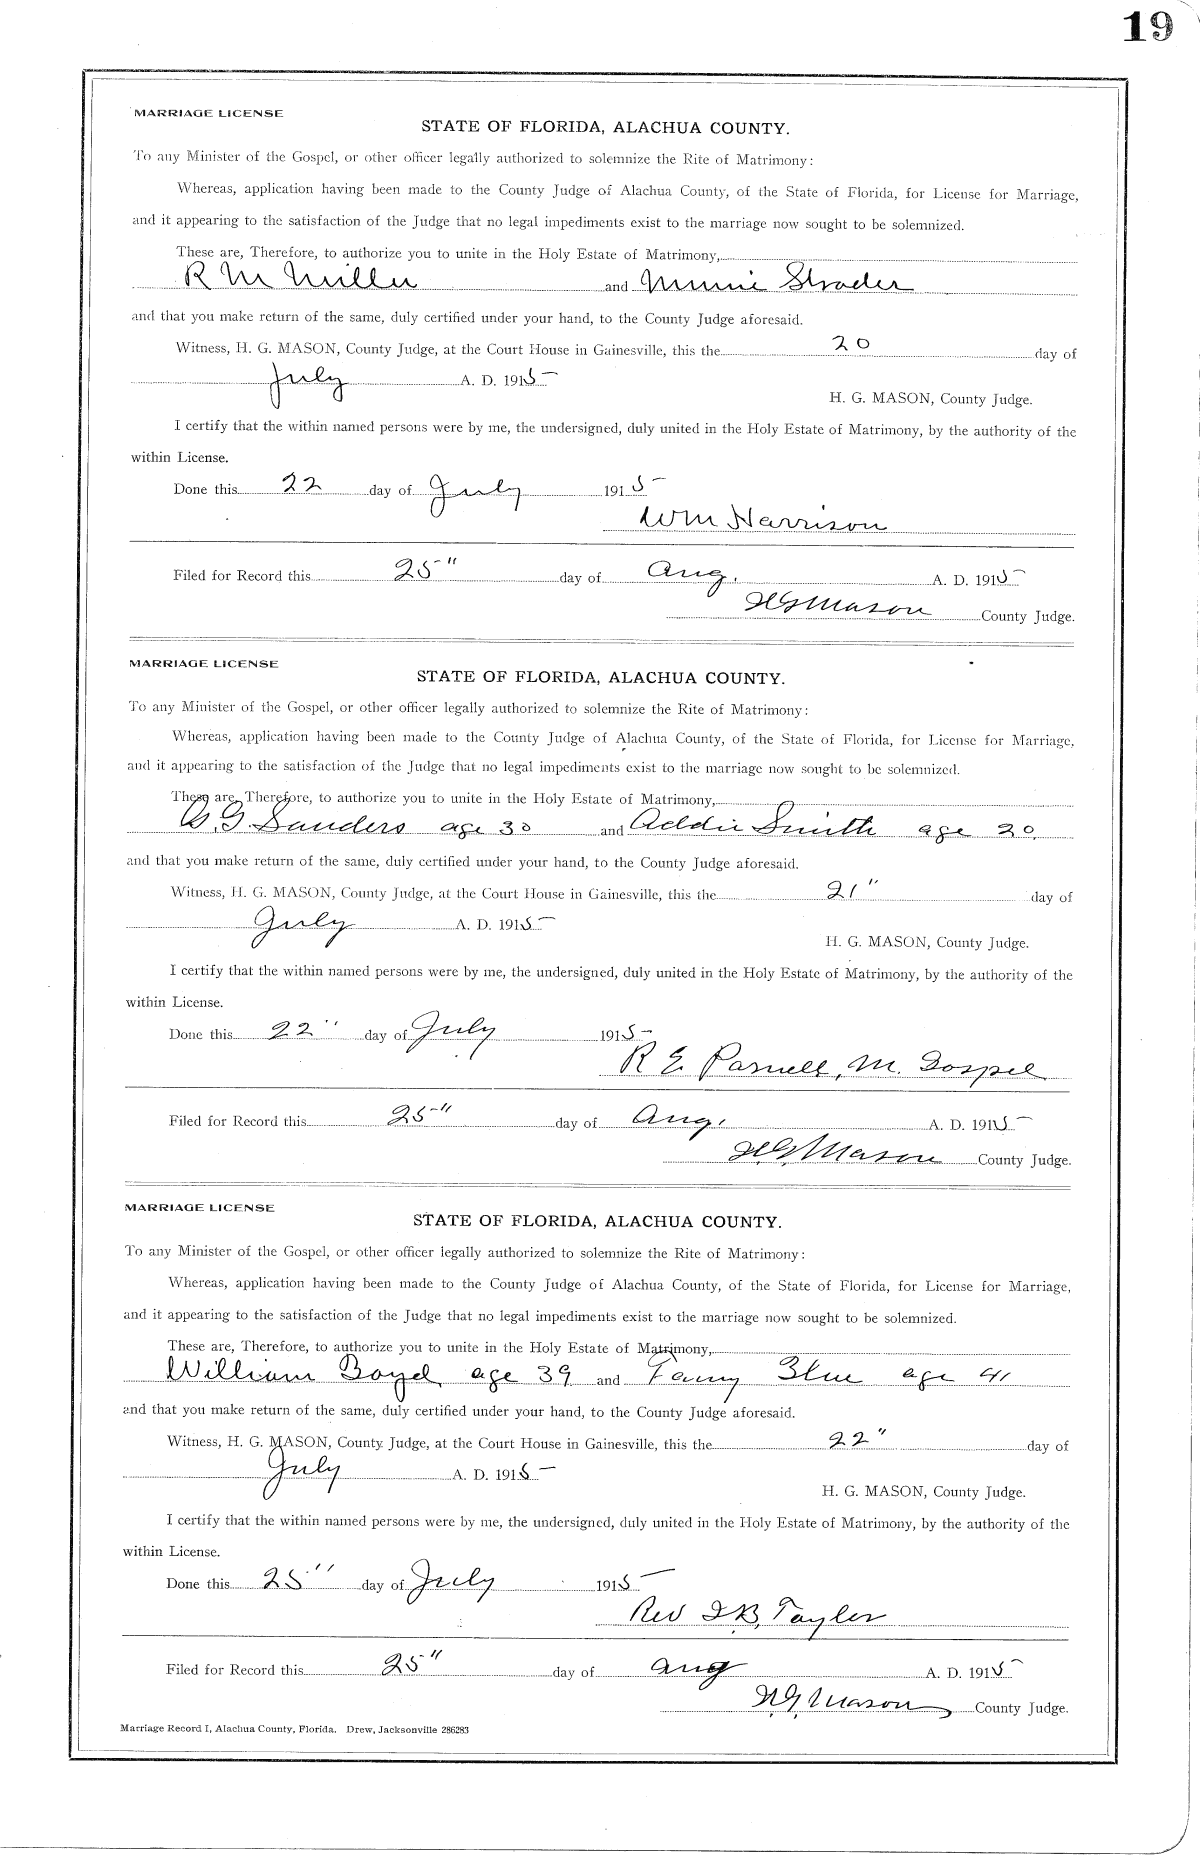 19
MARRIAGE LICENSE
STATE OF FLORIDA, ALACHUA COUNTY.
To any Minister of the Gospel, or other officer legally authorized to solemnize the Rite of Matrimony:
Whereas, application having been made to the County Judge of Alachua County, of the State of Florida, for License for Marriage,
and it appearing to the satisfaction of the Judge that no legal impediments exist to the marriage now sought to be solemnized.
These are, Therefore, to authorize you to unite in the Holy Estate of Matrimony,
R M Miller and Minnie Strader
and that you make return of the same, duly certified under your hand, to the County Judge aforesaid.
Witness, H. G. MASON, County Judge, at the Court House in Gainesville, this the 20 day of
July A. D. 1915
H. G. MASON, County Judge.
I certify that the within named persons were by me, the undersigned, duly united in the Holy Estate of Matrimony, by the authority of the
within License.
Done this 22 day of July 1915
Wm Harrison
Filed for Record this 25" day of Aug. A. D. 1915
H G Mason County Judge.
MARRIAGE LICENSE
STATE OF FLORIDA, ALACHUA COUNTY.
To any Minister of the Gospel, or other officer legally authorized to solemnize the Rite of Matrimony:
Whereas, application having been made to the County Judge of Alachua County, of the State of Florida, for License for Marriage,
and it appearing to the satisfaction of the Judge that no legal impediments exist to the marriage now sought to be solemnized.
These are, Therefore, to authorize you to unite in the Holy Estate of Matrimony,
G. Sanders age 30 and Addie Smith age 20
and that you make return of the same, duly certified under your hand, to the County Judge aforesaid.
Witness, H. G. MASON, County Judge, at the Court House in Gainesville, this the 21" day of
July A. D. 1915
H. G. MASON, County Judge.
I certify that the within named persons were by me, the undersigned, duly united in the Holy Estate of Matrimony, by the authority of the
within License.
Done this 22" day of July 1915
R E Parnell, M. Gospel
Filed for Record this 25" day of Aug. A. D. 1915
H. G. Mason County Judge.
MARRIAGE LICENSE
STATE OF FLORIDA, ALACHUA COUNTY.
To any Minister of the Gospel, or other officer legally authorized to solemnize the Rite of Matrimony:
Whereas, application having been made to the County Judge of Alachua County, of the State of Florida, for License for Marriage,
and it appearing to the satisfaction of the Judge that no legal impediments exist to the marriage now sought to be solemnized.
These are, Therefore, to authorize you to unite in the Holy Estate of Matrimony,
William Boyd age 39 and Fanny Blue age 41
and that you make return of the same, duly certified under your hand, to the County Judge aforesaid.
Witness, H. G. MASON, County Judge, at the Court House in Gainesville, this the 22" day of
July A. D. 1915
H. G. MASON, County Judge.
I certify that the within named persons were by me, the undersigned, duly united in the Holy Estate of Matrimony, by the authority of the
within License.
Done this 25" day of July 1915
Rev Taylor
Filed for Record this 25" day of Aug A. D. 1915
H. G. Mason County Judge.
Marriage Record I, Alachua County, Florida. Drew, Jacksonville 286283